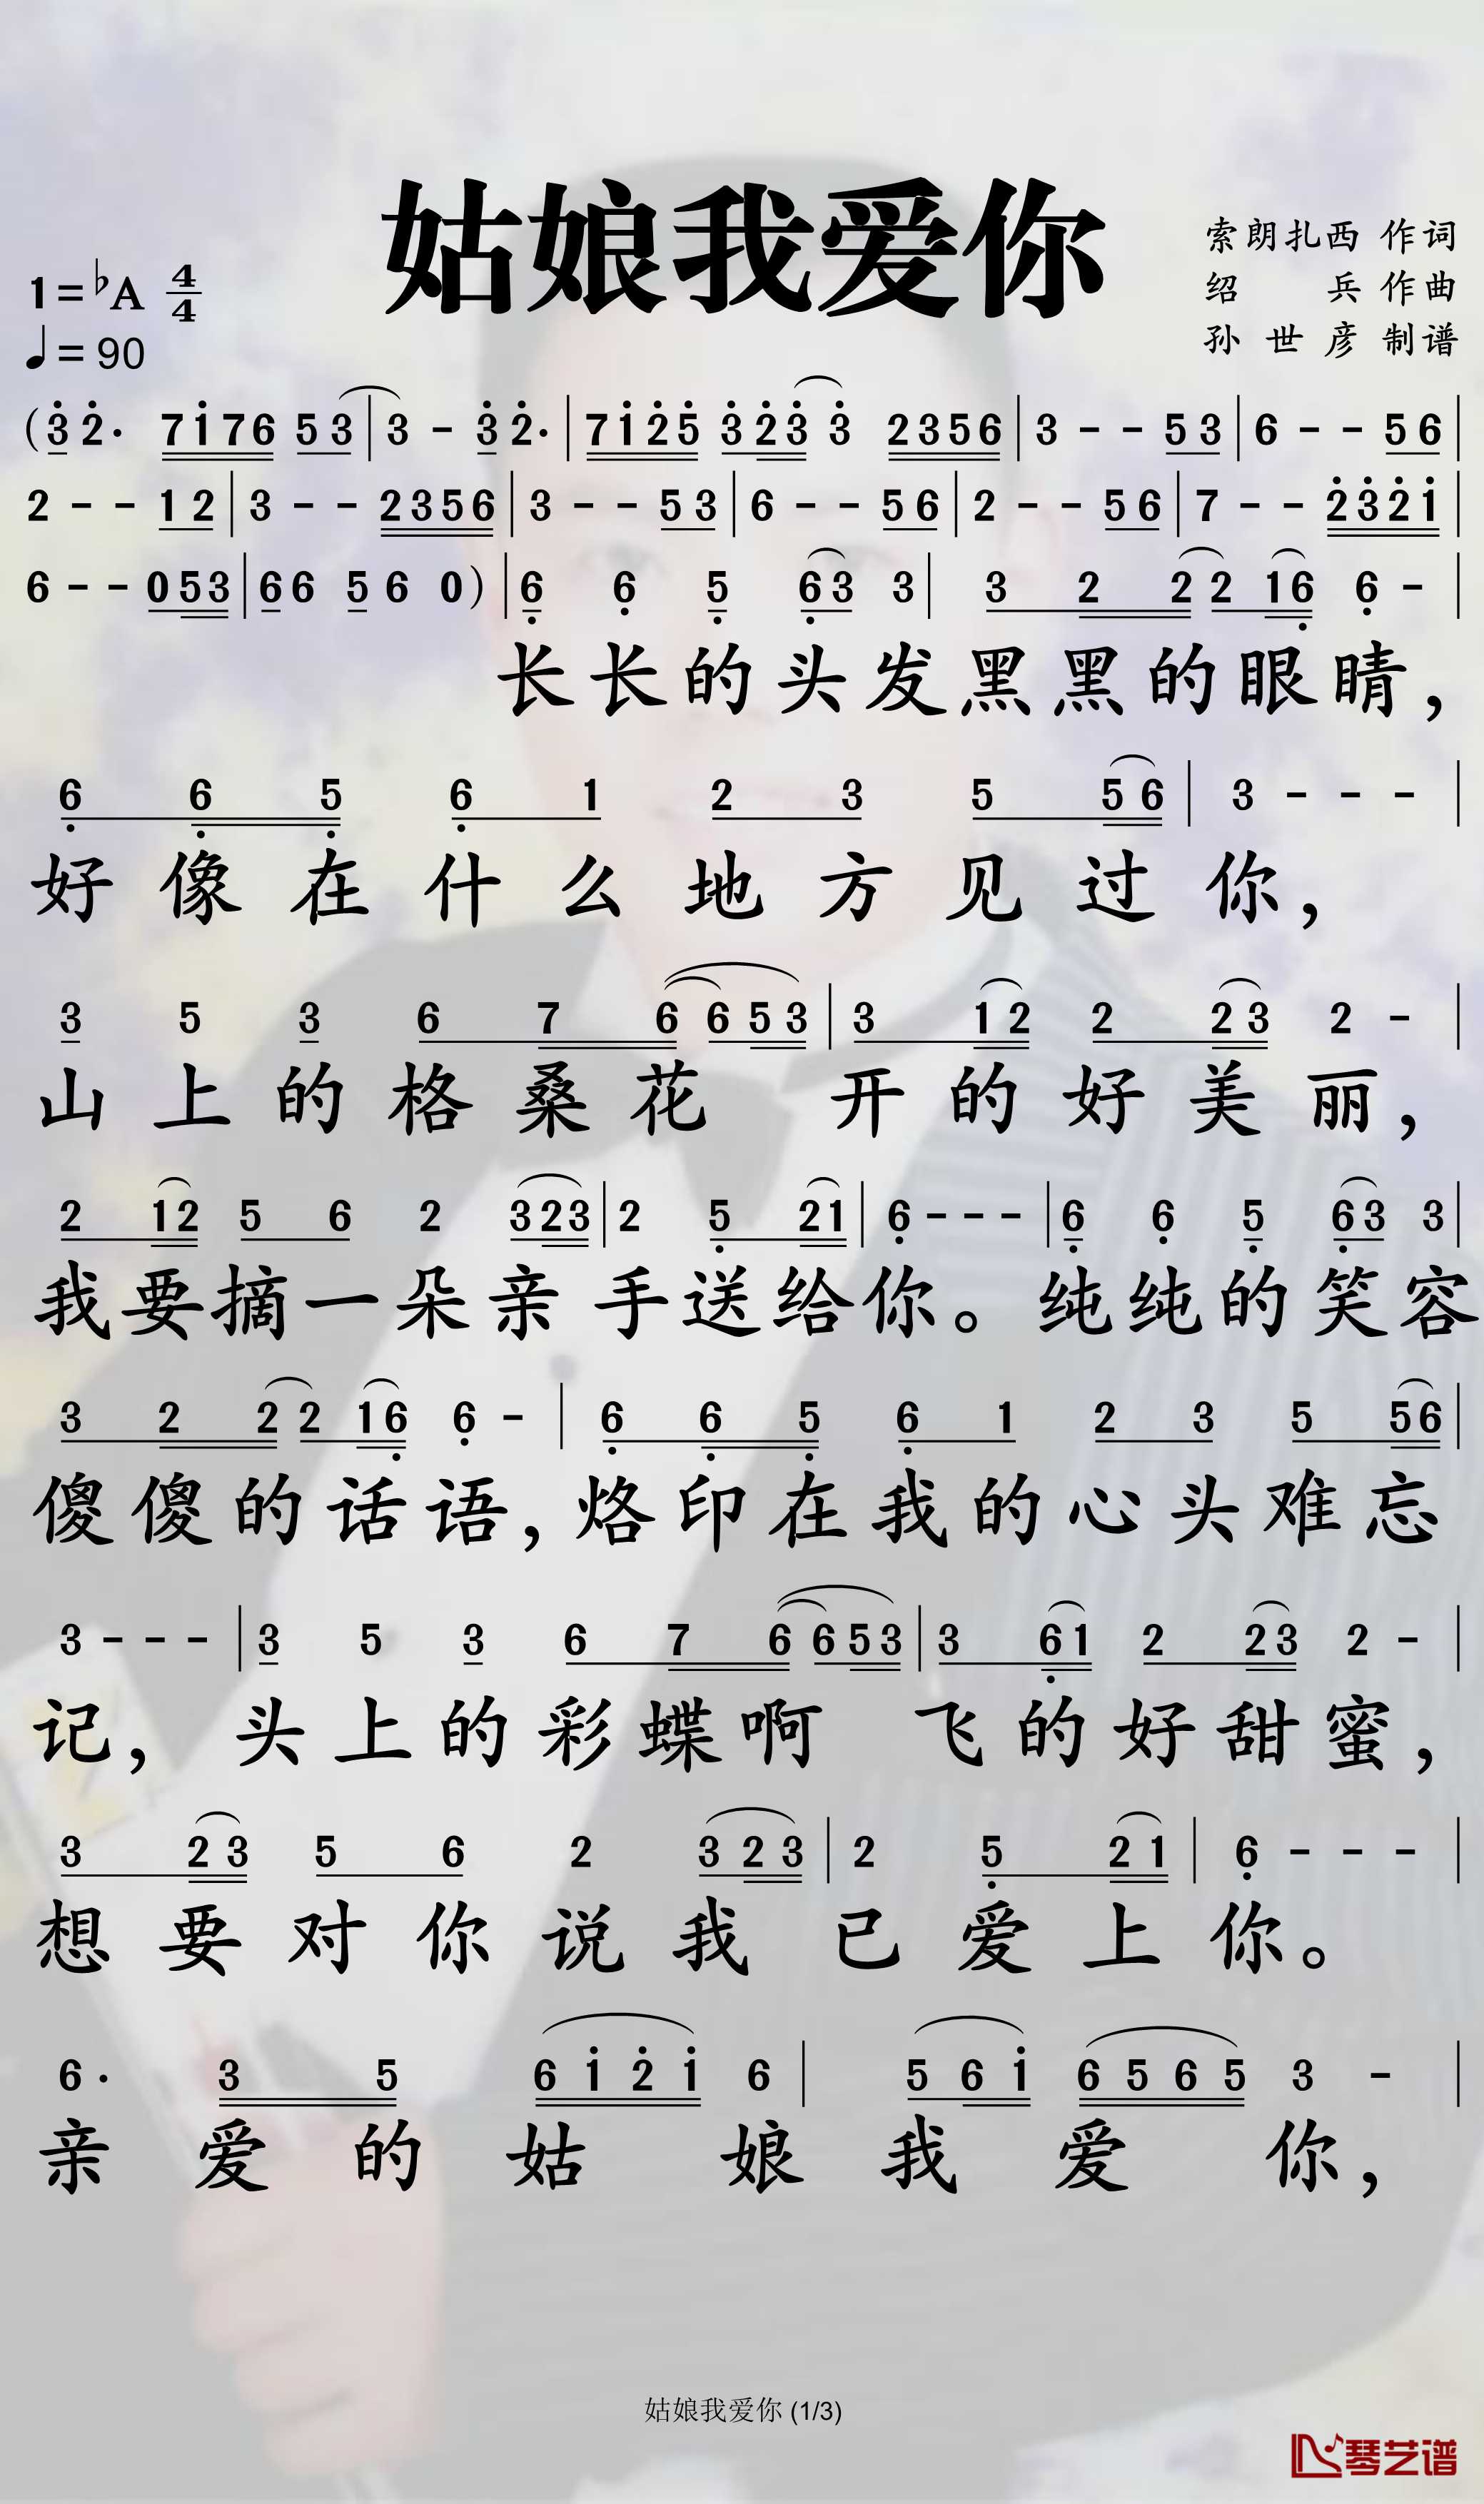 姑娘我爱你
索朗扎西 作词
1=♭A 4/4
绍 兵 作曲
♩=90
孙世彦 制谱
(3̇ 2̇· 7 1̇ 7 6 5 3 | 3 - 3̇ 2̇· | 7 1̇ 2̇ 5̇ 3̇ 2̇ 3̇ 3̇ 2 3 5 6 | 3 - - 5 3 | 6 - - 5 6 |
2 - - 1 2 | 3 - - 2 3 5 6 | 3 - - 5 3 | 6 - - 5 6 | 2 - - 5 6 | 7 - - 2̇ 3̇ 2̇ 1̇ |
6 - - 0 5 3 | 6 6 5 6 0) | 6̣ 6̣ 5̣ 6̣ 3 3 | 3 2 2 2 1 6̣ 6̣ - |
长长的头发黑黑的眼睛，
6̣ 6̣ 5̣ 6̣ 1 2 3 5 5 6 | 3 - - - |
好像在什么地方见过你，
3 5 3 6 7 6 6 5 3 | 3 1 2 2 2 3 2 - |
山上的格桑花 开的好美丽，
2 1 2 5 6 2 3 2 3 | 2 5̣ 2 1 | 6̣ - - - | 6̣ 6̣ 5̣ 6̣ 3 3 |
我要摘一朵亲手送给你。纯纯的笑容
3 2 2 2 1 6̣ 6̣ - | 6̣ 6̣ 5̣ 6̣ 1 2 3 5 5 6 |
傻傻的话语，烙印在我的心头难忘
3 - - - | 3 5 3 6 7 6 6 5 3 | 3 6̣ 1 2 2 3 2 - |
记，头上的彩蝶啊 飞的好甜蜜，
3 2 3 5 6 2 3 2 3 | 2 5̣ 2 1 | 6̣ - - - |
想要对你说我已爱上你。
6· 3 5 6 1̇ 2̇ 1̇ 6 | 5 6 1̇ 6 5 6 5 3 - |
亲爱的姑娘我爱你，
姑娘我爱你 (1/3)
琴艺谱